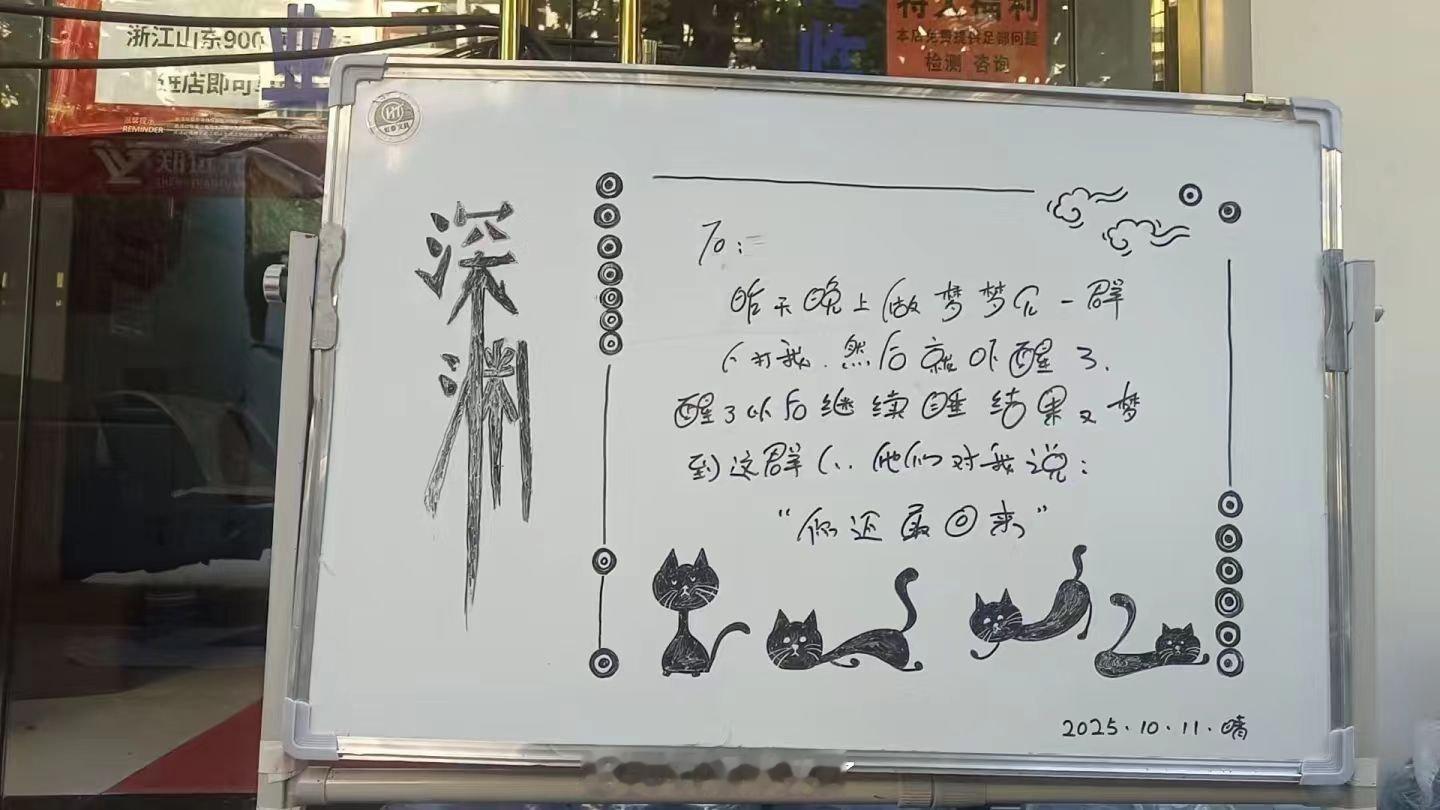 浙江山东900
进店即可
业
特大福利
本店免费提供足部问题
检测 咨询
温馨提示
REMINDER
深渊
To:
昨天晚上做梦梦见一群
人打我.然后就吓醒了.
醒了以后继续睡结果又梦
到这群人..他们对我说:
“你还敢回来”
2025.10.11.晴